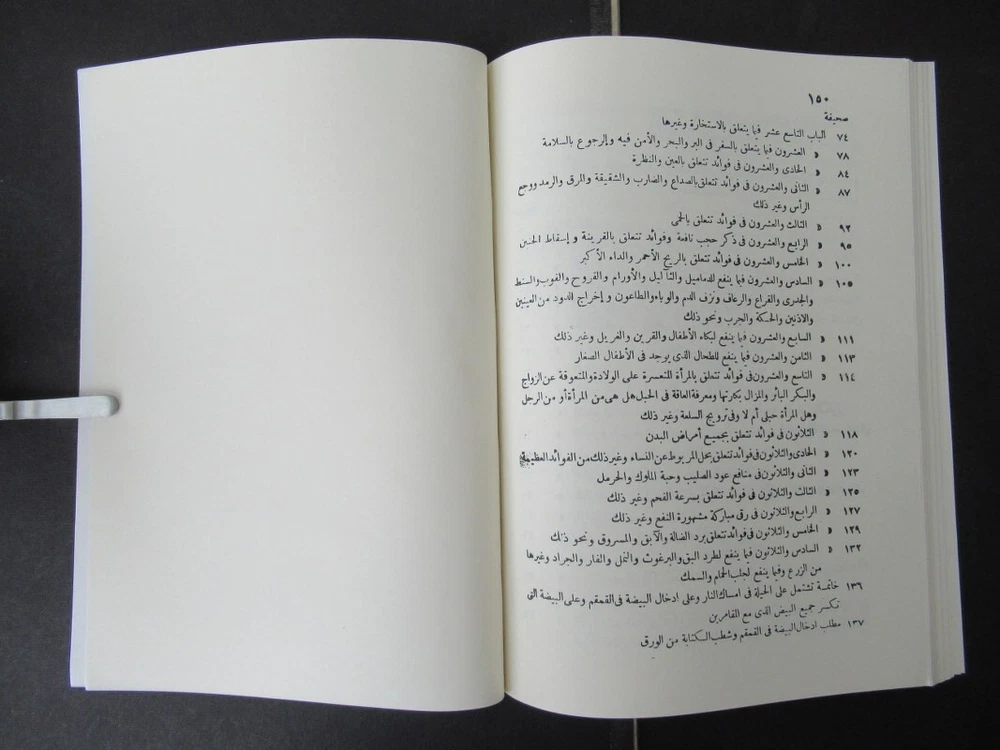 ١٥٠
صحيفة
٧٤ الباب التاسع عشر فيما يتعلق بالاستخارة وغيرها
٧٨ » العشرون فيما يتعلق بالسفر فى البر والبحر والأمن فيه والرجوع بالسلامة
٨٤ » الحادى والعشرون فى فوائد تتعلق بالعين والنظرة
٨٧ » الثانى والعشرون فى فوائد تتعلق بالصداع والضارب والشقيقة والمرق والرمد ووجع
الرأس وغير ذلك
٩٢ » الثالث والعشرون فى فوائد تتعلق بالحمى
٩٥ » الرابع والعشرون فى ذكر حجب نافعة وفوائد تتعلق بالقرينة وإسقاط الجنين
١٠٠ » الخامس والعشرون فى فوائد تتعلق بالريح الأحمر والداء الأكبر
١٠٥ » السادس والعشرون فيما ينفع للدماميل والتآليل والأورام والقروح والقوب والسنط
والجدرى والقراع والرعاف ونزف الدم والوباء والطاعون وإخراج الدود من العينين
والاذنين والحكة والجرب ونحو ذلك
١١١ » السابع والعشرون فيما ينفع لبكاء الأطفال والقرين والغريل وغير ذلك
١١٣ » الثامن والعشرون فيما ينفع للطحال الذى يوجد فى الأطفال الصغار
١١٤ » التاسع والعشرون فى فوائد تتعلق بالمرأة المتعسرة على الولادة والمتعوقة عن الزواج
والبكر البائر والمزال بكارتها ومعرفة العاقة فى الحبل هل هى من المرأة أو من الرجل
وهل المرأة حبلى أم لا وفى ترويج السلعة وغير ذلك
١١٨ » الثلاثون فى فوائد تتعلق بجميع أمراض البدن
١٢٠ » الحادى والثلاثون فى فوائد تتعلق بحل المربوط عن النساء وغير ذلك من الفوائد العظيمة
١٢٣ » الثانى والثلاثون فى منافع عود الصليب وحبة الملوك والحرمل
١٢٥ » الثالث والثلاثون فى فوائد تتعلق بسرعة الفحم وغير ذلك
١٢٧ » الرابع والثلاثون فى رقى مباركة مشهورة النفع وغير ذلك
١٢٩ » الخامس والثلاثون فى فوائد تتعلق برد الضالة والآبق والمسروق ونحو ذلك
١٣٢ » السادس والثلاثون فيما ينفع لطرد البق والبرغوث والنمل والفار والجراد وغيرها
من الزرع وفيما ينفع لجلب الحمام والسمك
١٣٦ خاتمة تشتمل على الحيلة فى امساك النار وعلى ادخال البيضة فى القمقم وعلى البيضة التى
تكسر جميع البيض الذى مع المقامرين
١٣٧ مطلب ادخال البيضة فى القمقم وشطب الكتابة من الورق